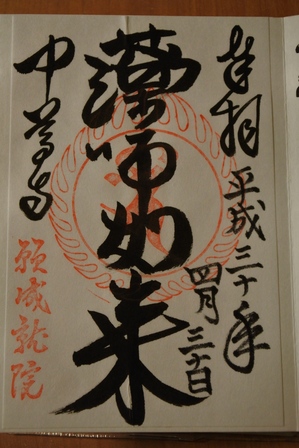 奉拝 平成三十年
四月三十日
薬師如来
中尊寺
願成就院